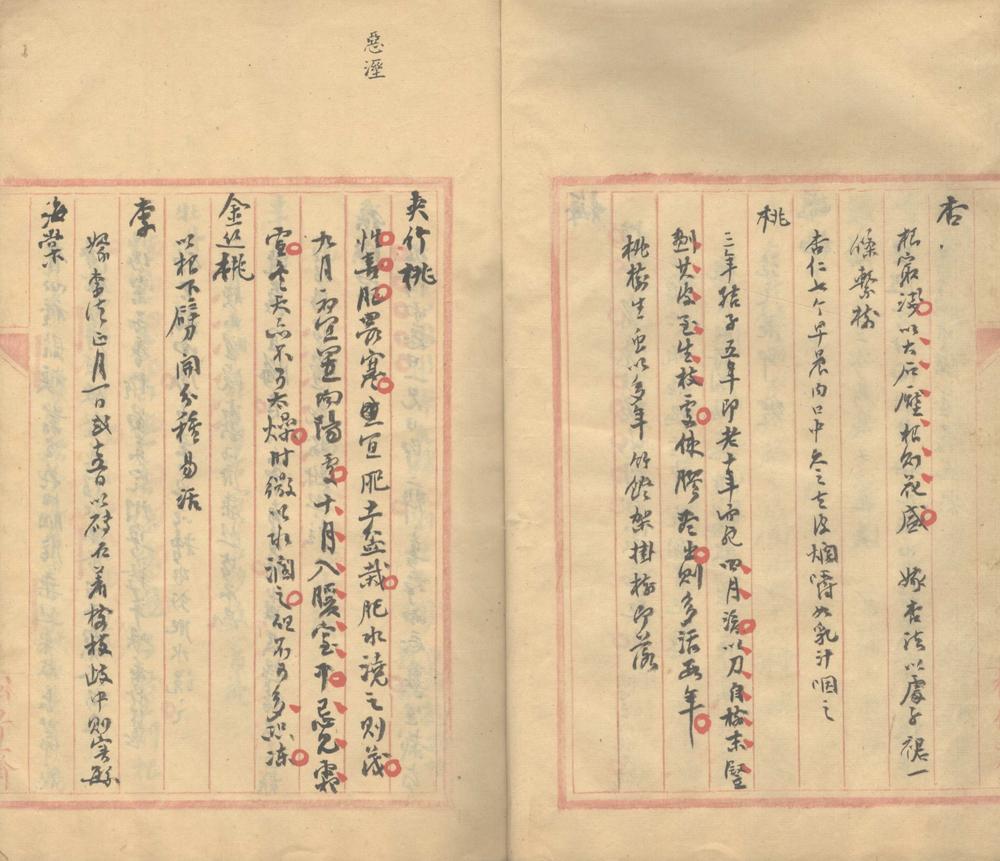 杏
根最淺以大石壓根則花盛 嫁杏法以處子裙一
條繫樹
杏仁七个早晨內口中久之去皮細嚼如乳汁咽之
桃
三年結子五年即老十年而死 四月後以刀自樹本豎
劙其皮至生枝處使膠盡出則多活數年
桃樹生虫以多年竹燈架掛樹即落
惡溼
夾竹桃
性喜肥畏寒 宜肥土盆栽肥水澆之則茂
九月初宜置向陽處十月入暖室中忌見霜
雪冬天亦不可太燥時微以水潤之但不可多恐凍
金絲桃
以根下劈開分種易活
李
嫁李法正月一日或十五日以磚石著樹枝歧中則實繁
海棠